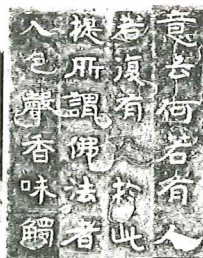 意云何若有人
者復有人於此
提所謂佛法者
入色聲香味觸